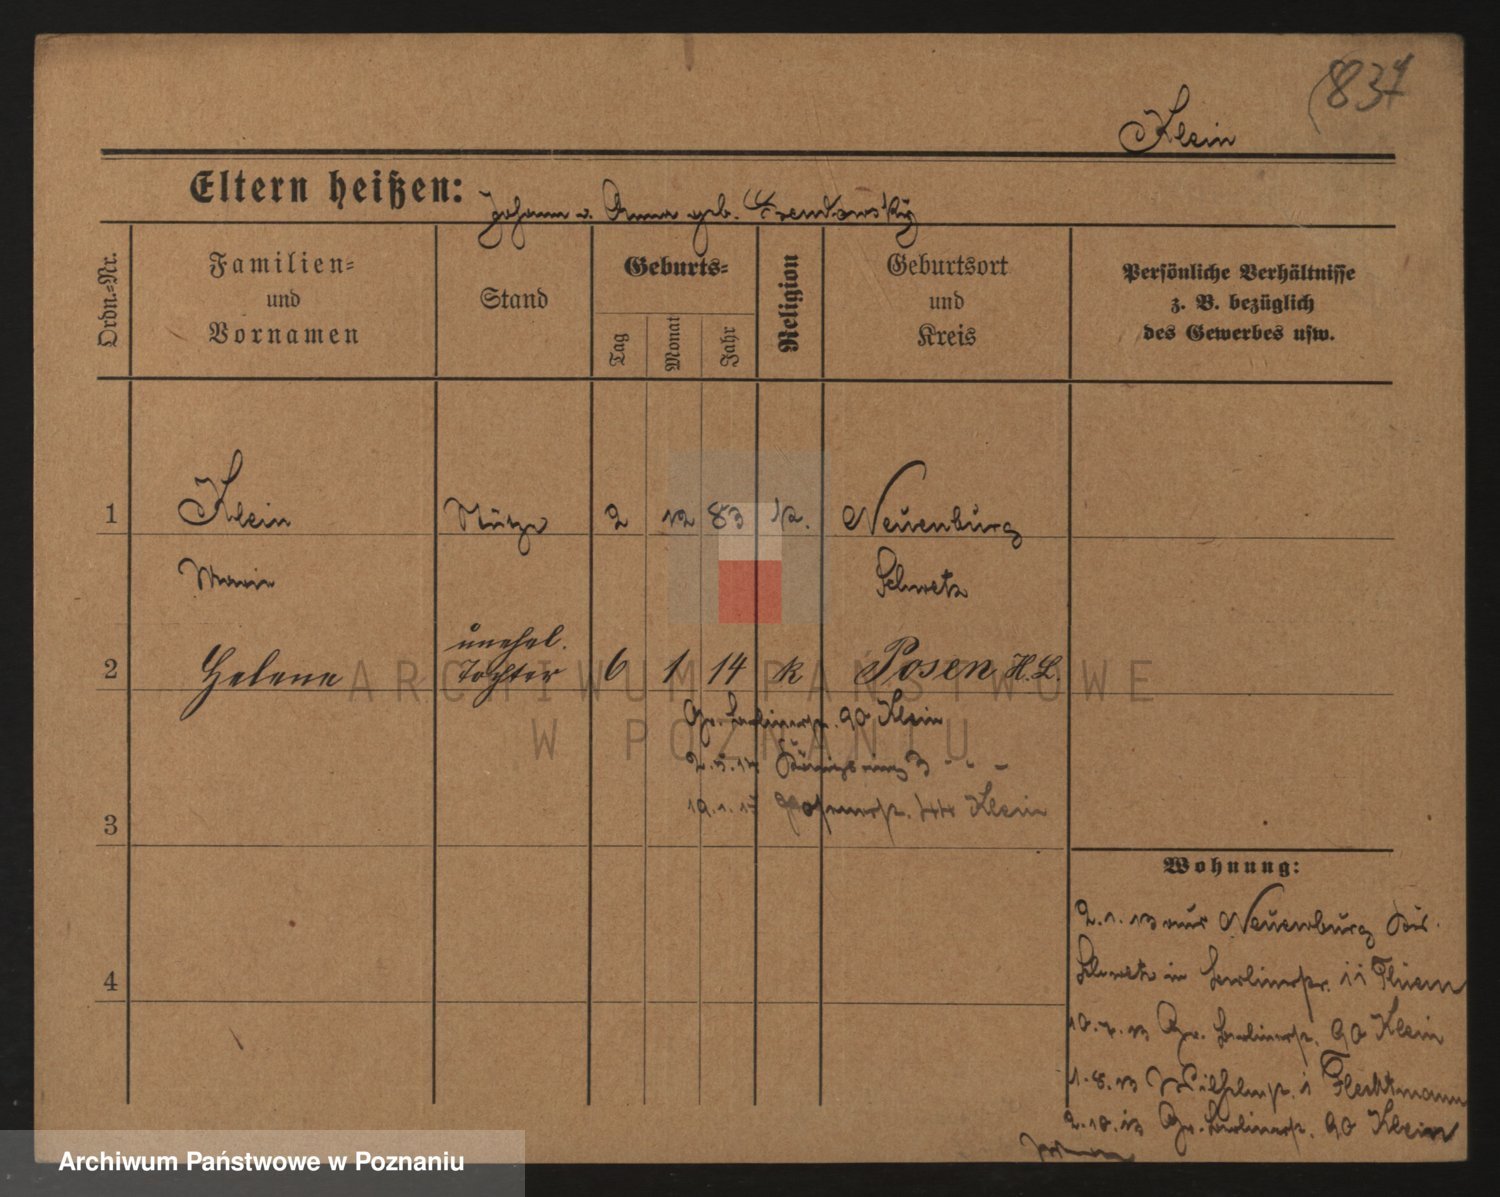 (837
Klein
Eltern heißen: Johann u. Anna geb.
Ordn.=Nr.
Familien= und Vornamen
Stand
Geburts=
Tag
Monat
Jahr
Religion
Geburtsort und Kreis
Persönliche Verhältnisse z. B. bezüglich des Gewerbes usw.
1 Klein Stütze 2 12 83 k. Neuenburg
Marie Schwetz
unehel.
2 Helene Tochter 6 1 14 k Posen H.L.
ARCHIWUM PAŃSTWOWE
W POZNANIU
Gr. Berlinerstr. 90 Klein
2.5.14 Königsring 3 - - -
19.1.17 Posenerstr. 44 Klein
3
4
Wohnung:
2.1.13 aus Neuenburg Krs.
Schwetz in Berlinerstr. 11
10.4.13 Gr. Berlinerstr. 90 Klein
1.8.13 Wilhelmstr. 1
2.10.13 Gr. Berlinerstr. 90 Klein
Archiwum Państwowe w Poznaniu